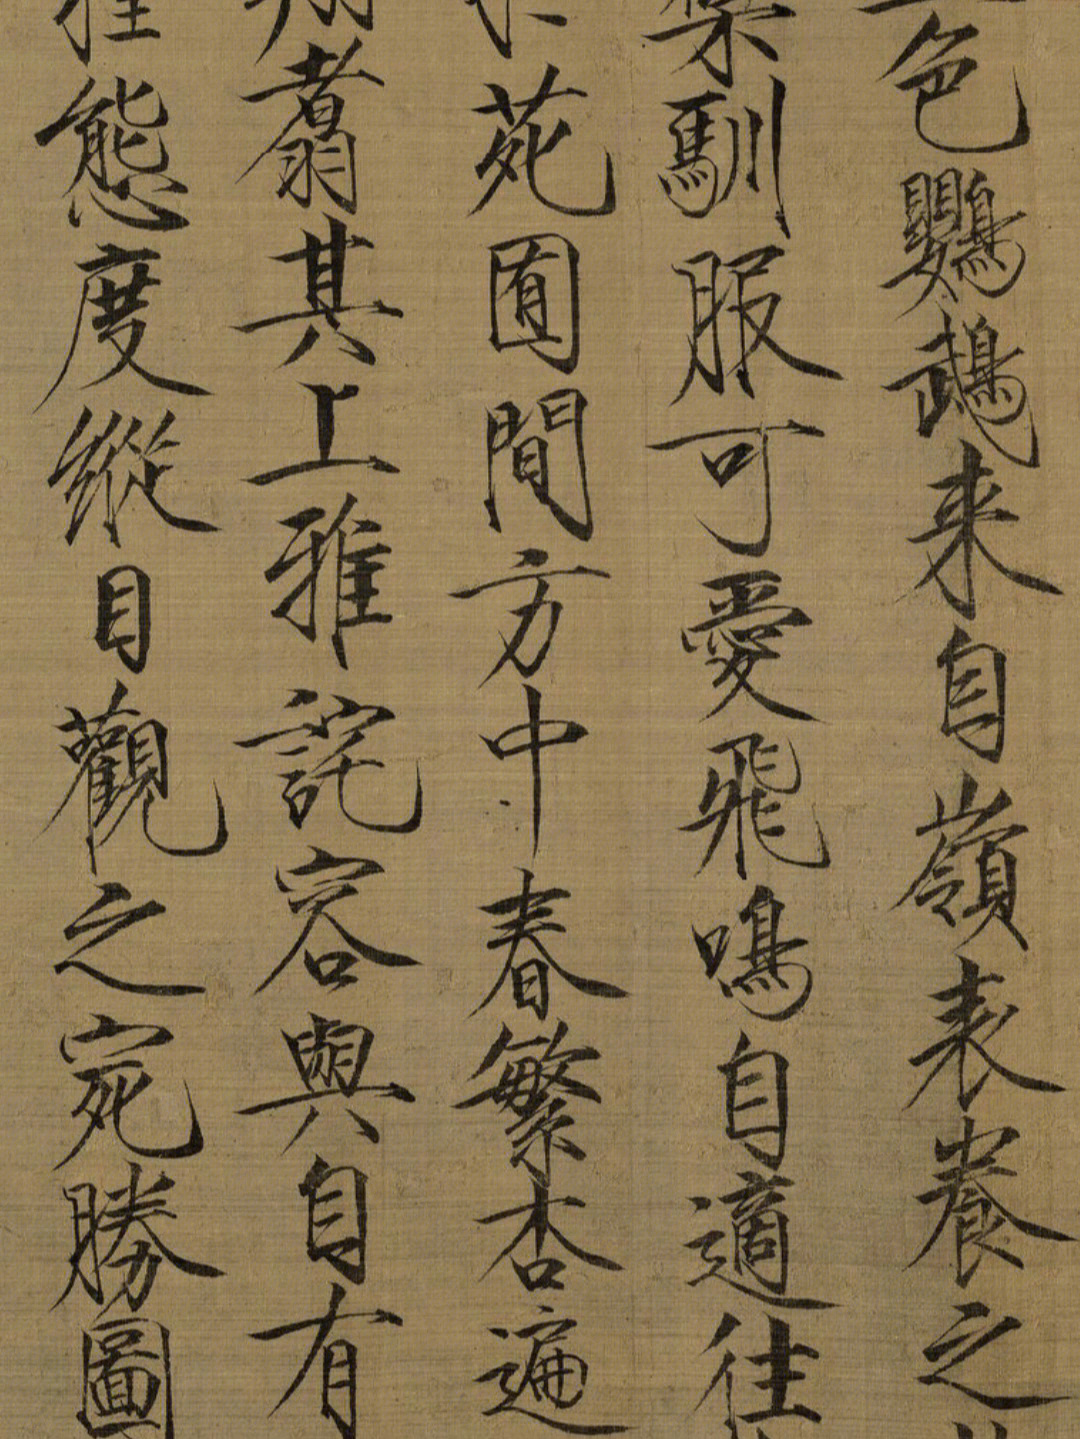 色鸚鵡来自嶺表養之
馴服可愛飛鳴自適往
苑囿間方中春繁杏遍
翥其上雅詫容與自有
態度縱目觀之宛勝圖